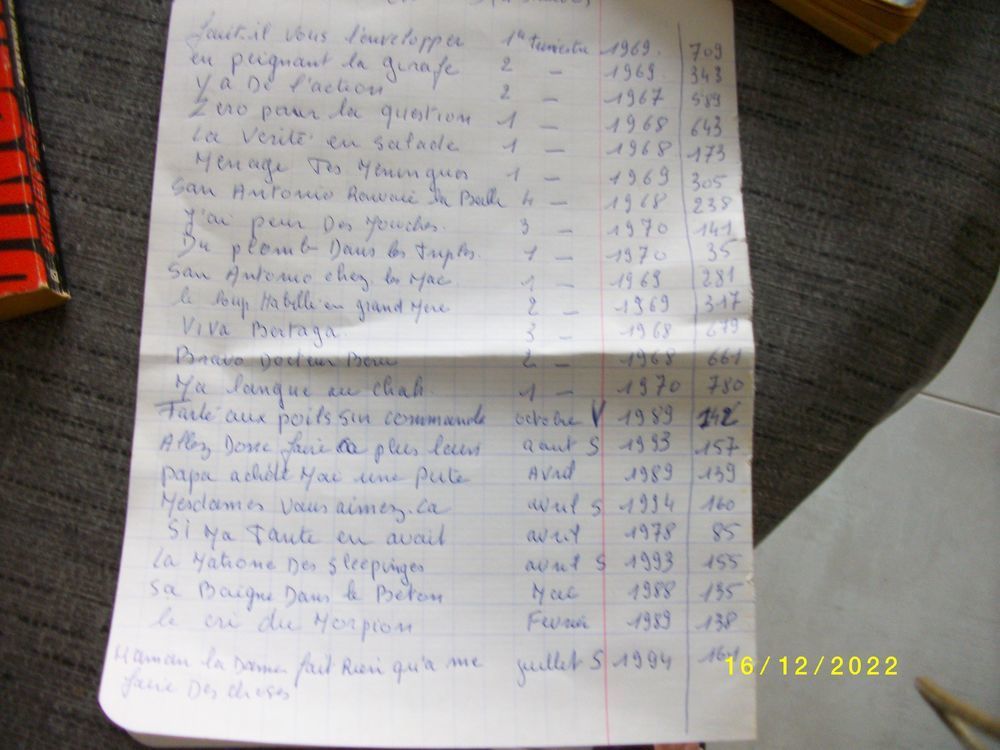 fait-il vous l'envelopper 1er trimestre 1969. 709
en peignant la girafe 2 — 1969. 343
Y a De l'action 2 — 1967 589
Zero pour la question 1 — 1968 643
La verité en salade 1 — 1968 173
Menage Tes Meninges 1 — 1969 305
San Antonio Renvoie la Balle 4 — 1968 238
J'ai peur Des Mouches. 3 — 1970 141
Du plomb Dans les Tripes. 1 — 1970 35
San Antonio chez les Mac 1 — 1969 281
le loup Habillé en grand Mere 2 — 1969 317
Viva Bertaga. 3 — 1968 679
Bravo Docteur Beru 2 — 1968 661
Ma langue au chah. 1 — 1970 780
Tarte aux poils sur commande octobre V 1989 142
Allez Donc faire ca plus loin aout S 1993 157
papa achète Moi une Pute Avril 1989 139
Mesdames vous aimez ca avril S 1994 160
Si Ma Tante en avait avril 1978 85
La Matrone Des Sleepinges avril S 1993 155
Sa Baigne Dans le Beton Mac 1988 135
le cri du Morpion Fevrier 1989 138
Maman la Dame fait Rien qu'a me juillet S 1994
faire Des choses
16/12/2022